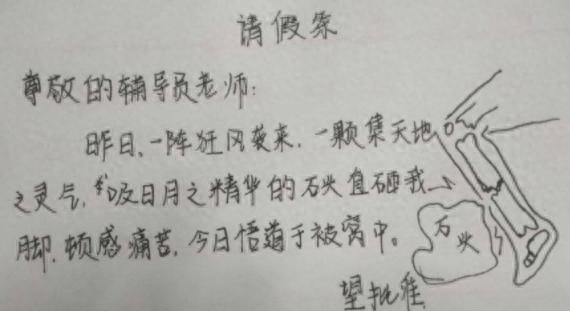 请假条
尊敬的辅导员老师:
昨日,一阵狂风袭来,一颗集天地
之灵气,吸日月之精华的石头直砸我
脚,顿感痛苦,今日悟道于被窝中。
石头
望批准